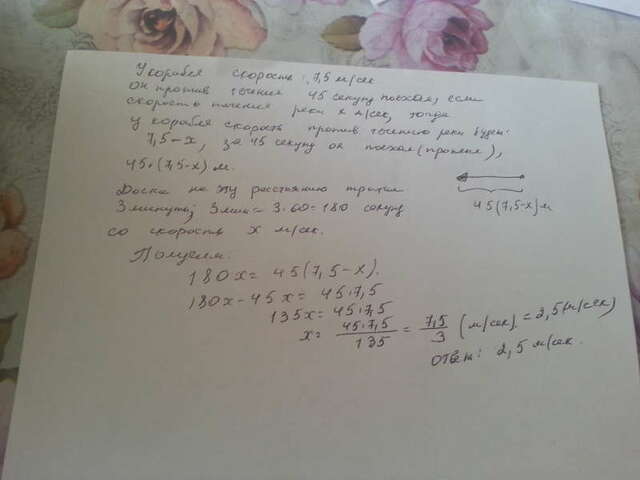 У корабля скорость: 7,5 м/сек
он против течения 45 секунд поехал, если
скорость течения реки x м/сек, тогда
у корабля скорость против течению реки будет:
7,5-x, за 45 секунд он поехал (проплыл),
45·(7,5-x) м.
Доска на эту расстоянию тратил
3 минуты; 3 мин = 3·60=180 секунд
45(7,5-x) м
со скорость x м/сек.
Получим:
180x = 45(7,5-x).
180x-45x = 45·7,5
135x = 45·7,5
x = 45·7,5/135 = 7,5/3 (м/сек) = 2,5 (м/сек)
ответ: 2,5 м/сек.